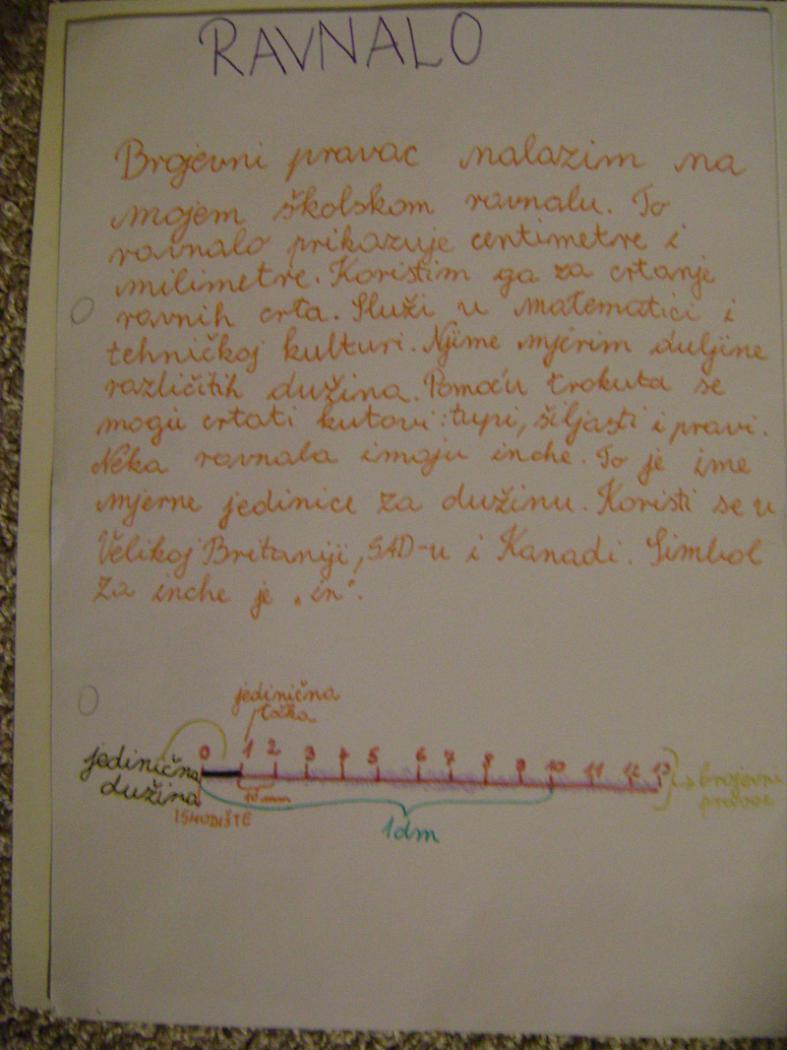 RAVNALO
Brojevni pravac nalazim na
mojem školskom ravnalu. To
ravnalo prikazuje centimetre i
milimetre. Koristim ga za crtanje
ravnih crta. Služi u matematici i
tehničkoj kulturi. Njime mjerim duljine
različitih dužina. Pomoću trokuta se
mogu crtati kutovi: tupi, šiljasti i pravi.
Neka ravnala imaju inche. To je ime
mjerne jedinice za dužinu. Koristi se u
Velikoj Britaniji, SAD-u i Kanadi. Simbol
za inche je „in".
jedinična
točka
0 1 2 3 4 5 6 7 8 9 10 11 12 13
jedinična
dužina
brojevni
pravac
10 mm
ISHODIŠTE
1dm